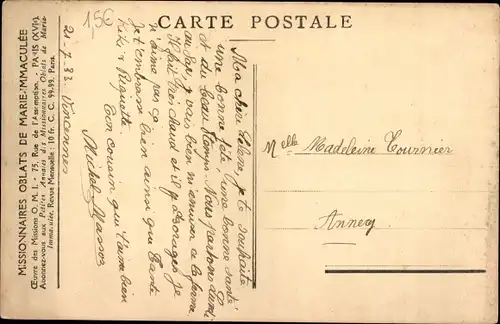 CARTE POSTALE
1,5€
MISSIONNAIRES OBLATS DE MARIE-IMMACULÉE
Œuvre des Missions O. M. I. - 75, Rue de l'Assomption, PARIS (XVIe)
Abonnez-vous aux Petites Annales des Missionnaires Oblats de Marie-
Immaculée, Revue Mensuelle : 10 fr. C. C. 99-99, Paris.
21-7-33 Vincennes
Ma chère je te souhaite
une bonne fête, une bonne santé
et du beau temps. Nous partons lundi
au je vais bien m'amuser à la ferme.
Il fait très chaud et il y d'orages je
n'aime pas ça.
Je t'embrasse bien ainsi que Tante
Kiki & Riquette.
Ton cousin qui t'aime bien
Michel
Melle Madeleine Tournier
Annecy